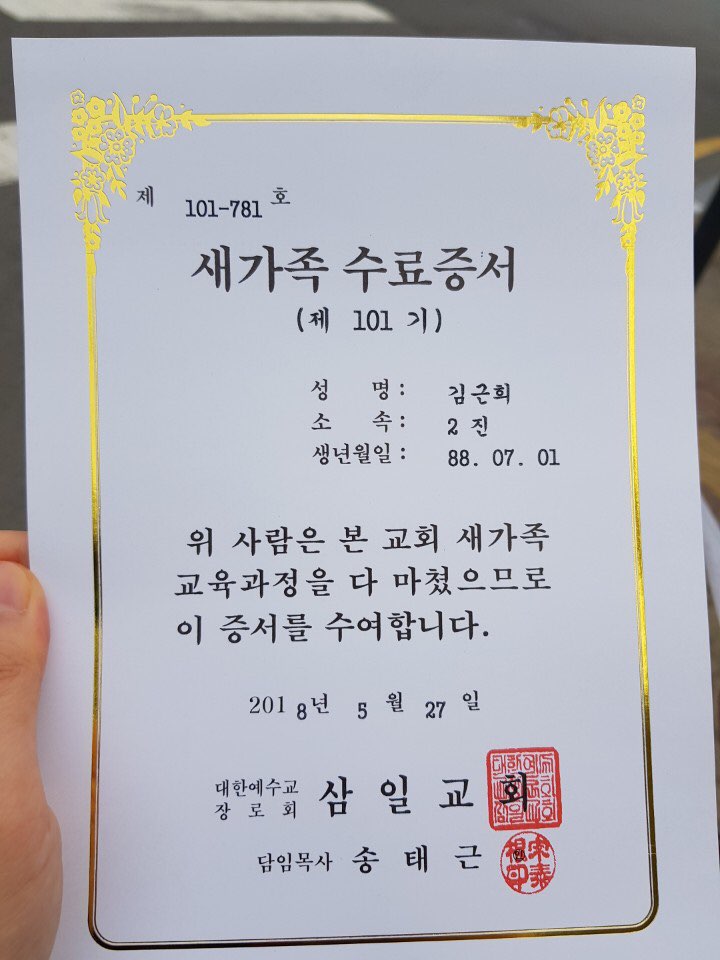 제 101-781 호
새가족 수료증서
(제 101 기)
성 명 : 김근희
소 속 : 2 진
생년월일 : 88. 07. 01
위 사람은 본 교회 새가족
교육과정을 다 마쳤으므로
이 증서를 수여합니다.
2018년 5 월 27 일
대한예수교
장로회 삼일교회
담임목사 송태근